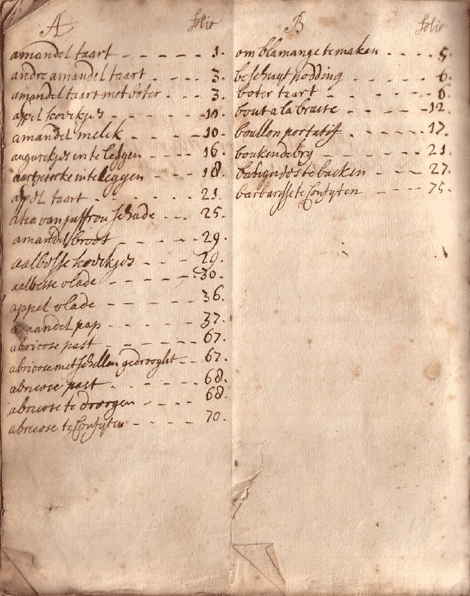 A folio
amandel taart - - - - - 1.
andre amandel taart - - - 3.
amandel taart met boter - - 3.
appel koeckjes - - - - 10.
amandel melck - - - - 10.
augurckjes in te leggen - - - 16.
in te leggen - - - 18.
appel taart - - - - 21.
van juffrou schade - - - 25.
amandel broot - - - - 29.
aalbesse koeckjes - - - 29.
aalbesse vlade - - - - 30.
appel vlade - - - - 36.
amandel pap - - - - 37.
abricose past - - - - 67.
abricose met schellen gedrooght - - 67.
abricose past - - - - 68.
abricose te droogen - - - 68.
abricose te Confyten - - - 70.
B folio
om blamange te maken - - - - 5.
beschuyt podding - - - - 6.
boter taart - - - - 8.
bout a la braise - - - - 12
boullon portatif - - - - 17.
- - - - 21.
te backen - - - - 27.
te Confyten - - - - 75.